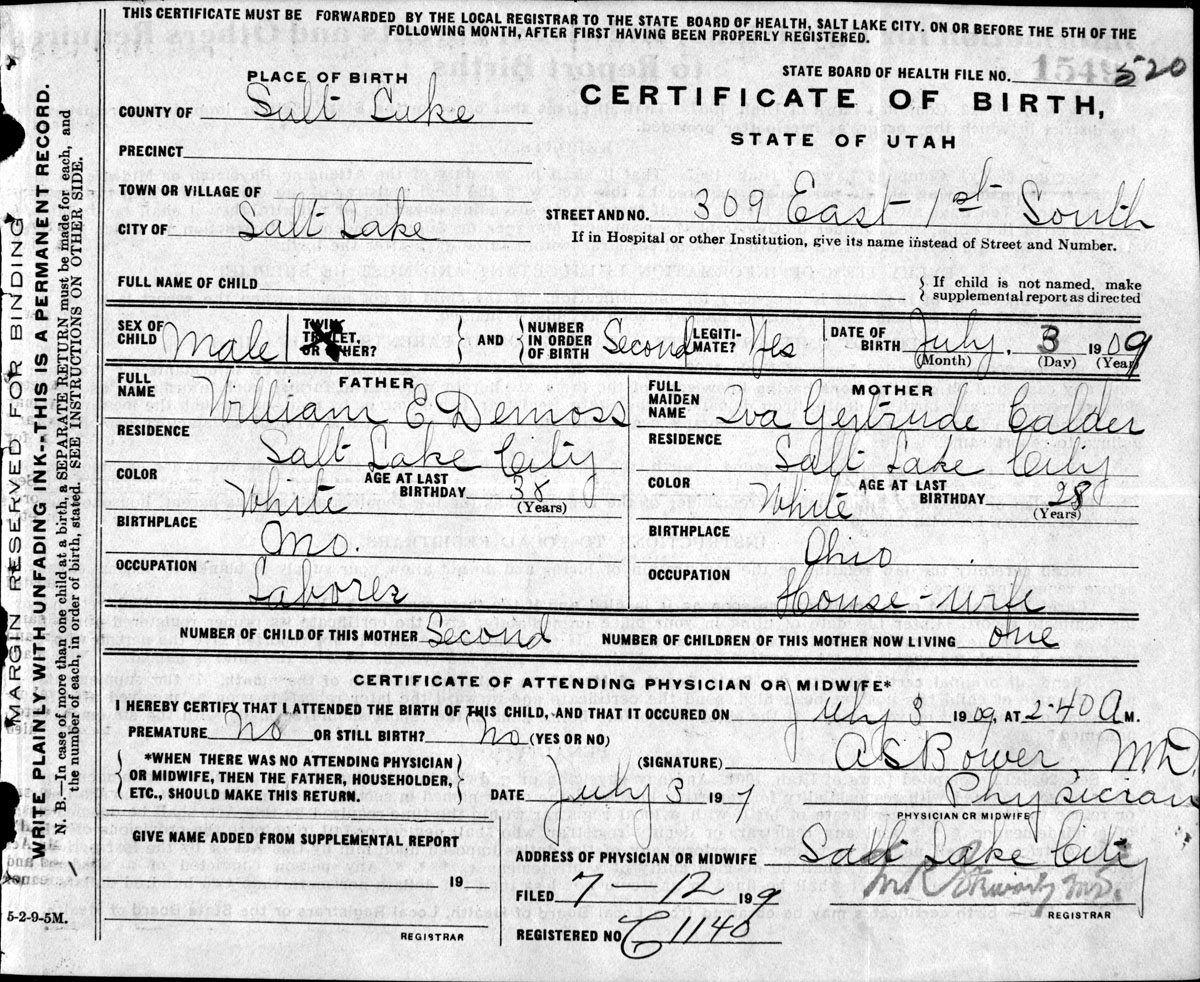 THIS CERTIFICATE MUST BE FORWARDED BY THE LOCAL REGISTRAR TO THE STATE BOARD OF HEALTH, SALT LAKE CITY, ON OR BEFORE THE 5TH OF THE
FOLLOWING MONTH, AFTER FIRST HAVING BEEN PROPERLY REGISTERED.
STATE BOARD OF HEALTH FILE NO. 520
PLACE OF BIRTH
CERTIFICATE OF BIRTH,
STATE OF UTAH
COUNTY OF Salt Lake
PRECINCT
TOWN OR VILLAGE OF
CITY OF Salt Lake
STREET AND NO. 309 East 1st South
If in Hospital or other Institution, give its name instead of Street and Number.
FULL NAME OF CHILD
If child is not named, make
supplemental report as directed
SEX OF CHILD Male
TWIN, TRIPLET, OR OTHER?
AND
NUMBER IN ORDER OF BIRTH Second
LEGITI-MATE? Yes
DATE OF BIRTH July, 3 1909
(Month) (Day) (Year)
FATHER
FULL NAME William E. Demoss
RESIDENCE
Salt Lake City
COLOR White
AGE AT LAST BIRTHDAY 38
(Years)
BIRTHPLACE
Mo.
OCCUPATION
Laborer
MOTHER
FULL MAIDEN NAME Iva Gertrude Calder
RESIDENCE
Salt Lake City
COLOR White
AGE AT LAST BIRTHDAY 28
(Years)
BIRTHPLACE
Ohio
OCCUPATION
House-wife
NUMBER OF CHILD OF THIS MOTHER Second
NUMBER OF CHILDREN OF THIS MOTHER NOW LIVING one
CERTIFICATE OF ATTENDING PHYSICIAN OR MIDWIFE*
I HEREBY CERTIFY THAT I ATTENDED THE BIRTH OF THIS CHILD, AND THAT IT OCCURED ON July 3 1909, AT 2-40 A M.
PREMATURE No OR STILL BIRTH? No (YES OR NO)
*WHEN THERE WAS NO ATTENDING PHYSICIAN
OR MIDWIFE, THEN THE FATHER, HOUSEHOLDER,
ETC., SHOULD MAKE THIS RETURN.
(SIGNATURE) A S Bower, MD
DATE July 3 19
Physician
PHYSICIAN OR MIDWIFE
GIVE NAME ADDED FROM SUPPLEMENTAL REPORT
19
REGISTRAR
ADDRESS OF PHYSICIAN OR MIDWIFE Salt Lake City
FILED 7-12 199
M R Stewart MD.
REGISTRAR
REGISTERED NO 1140
5-2-9-5M.
MARGIN RESERVED FOR BINDING
WRITE PLAINLY WITH UNFADING INK--THIS IS A PERMANENT RECORD.
N. B.—In case of more than one child at a birth, a SEPARATE RETURN must be made for each, and
the number of each, in order of birth, stated. SEE INSTRUCTIONS ON OTHER SIDE.